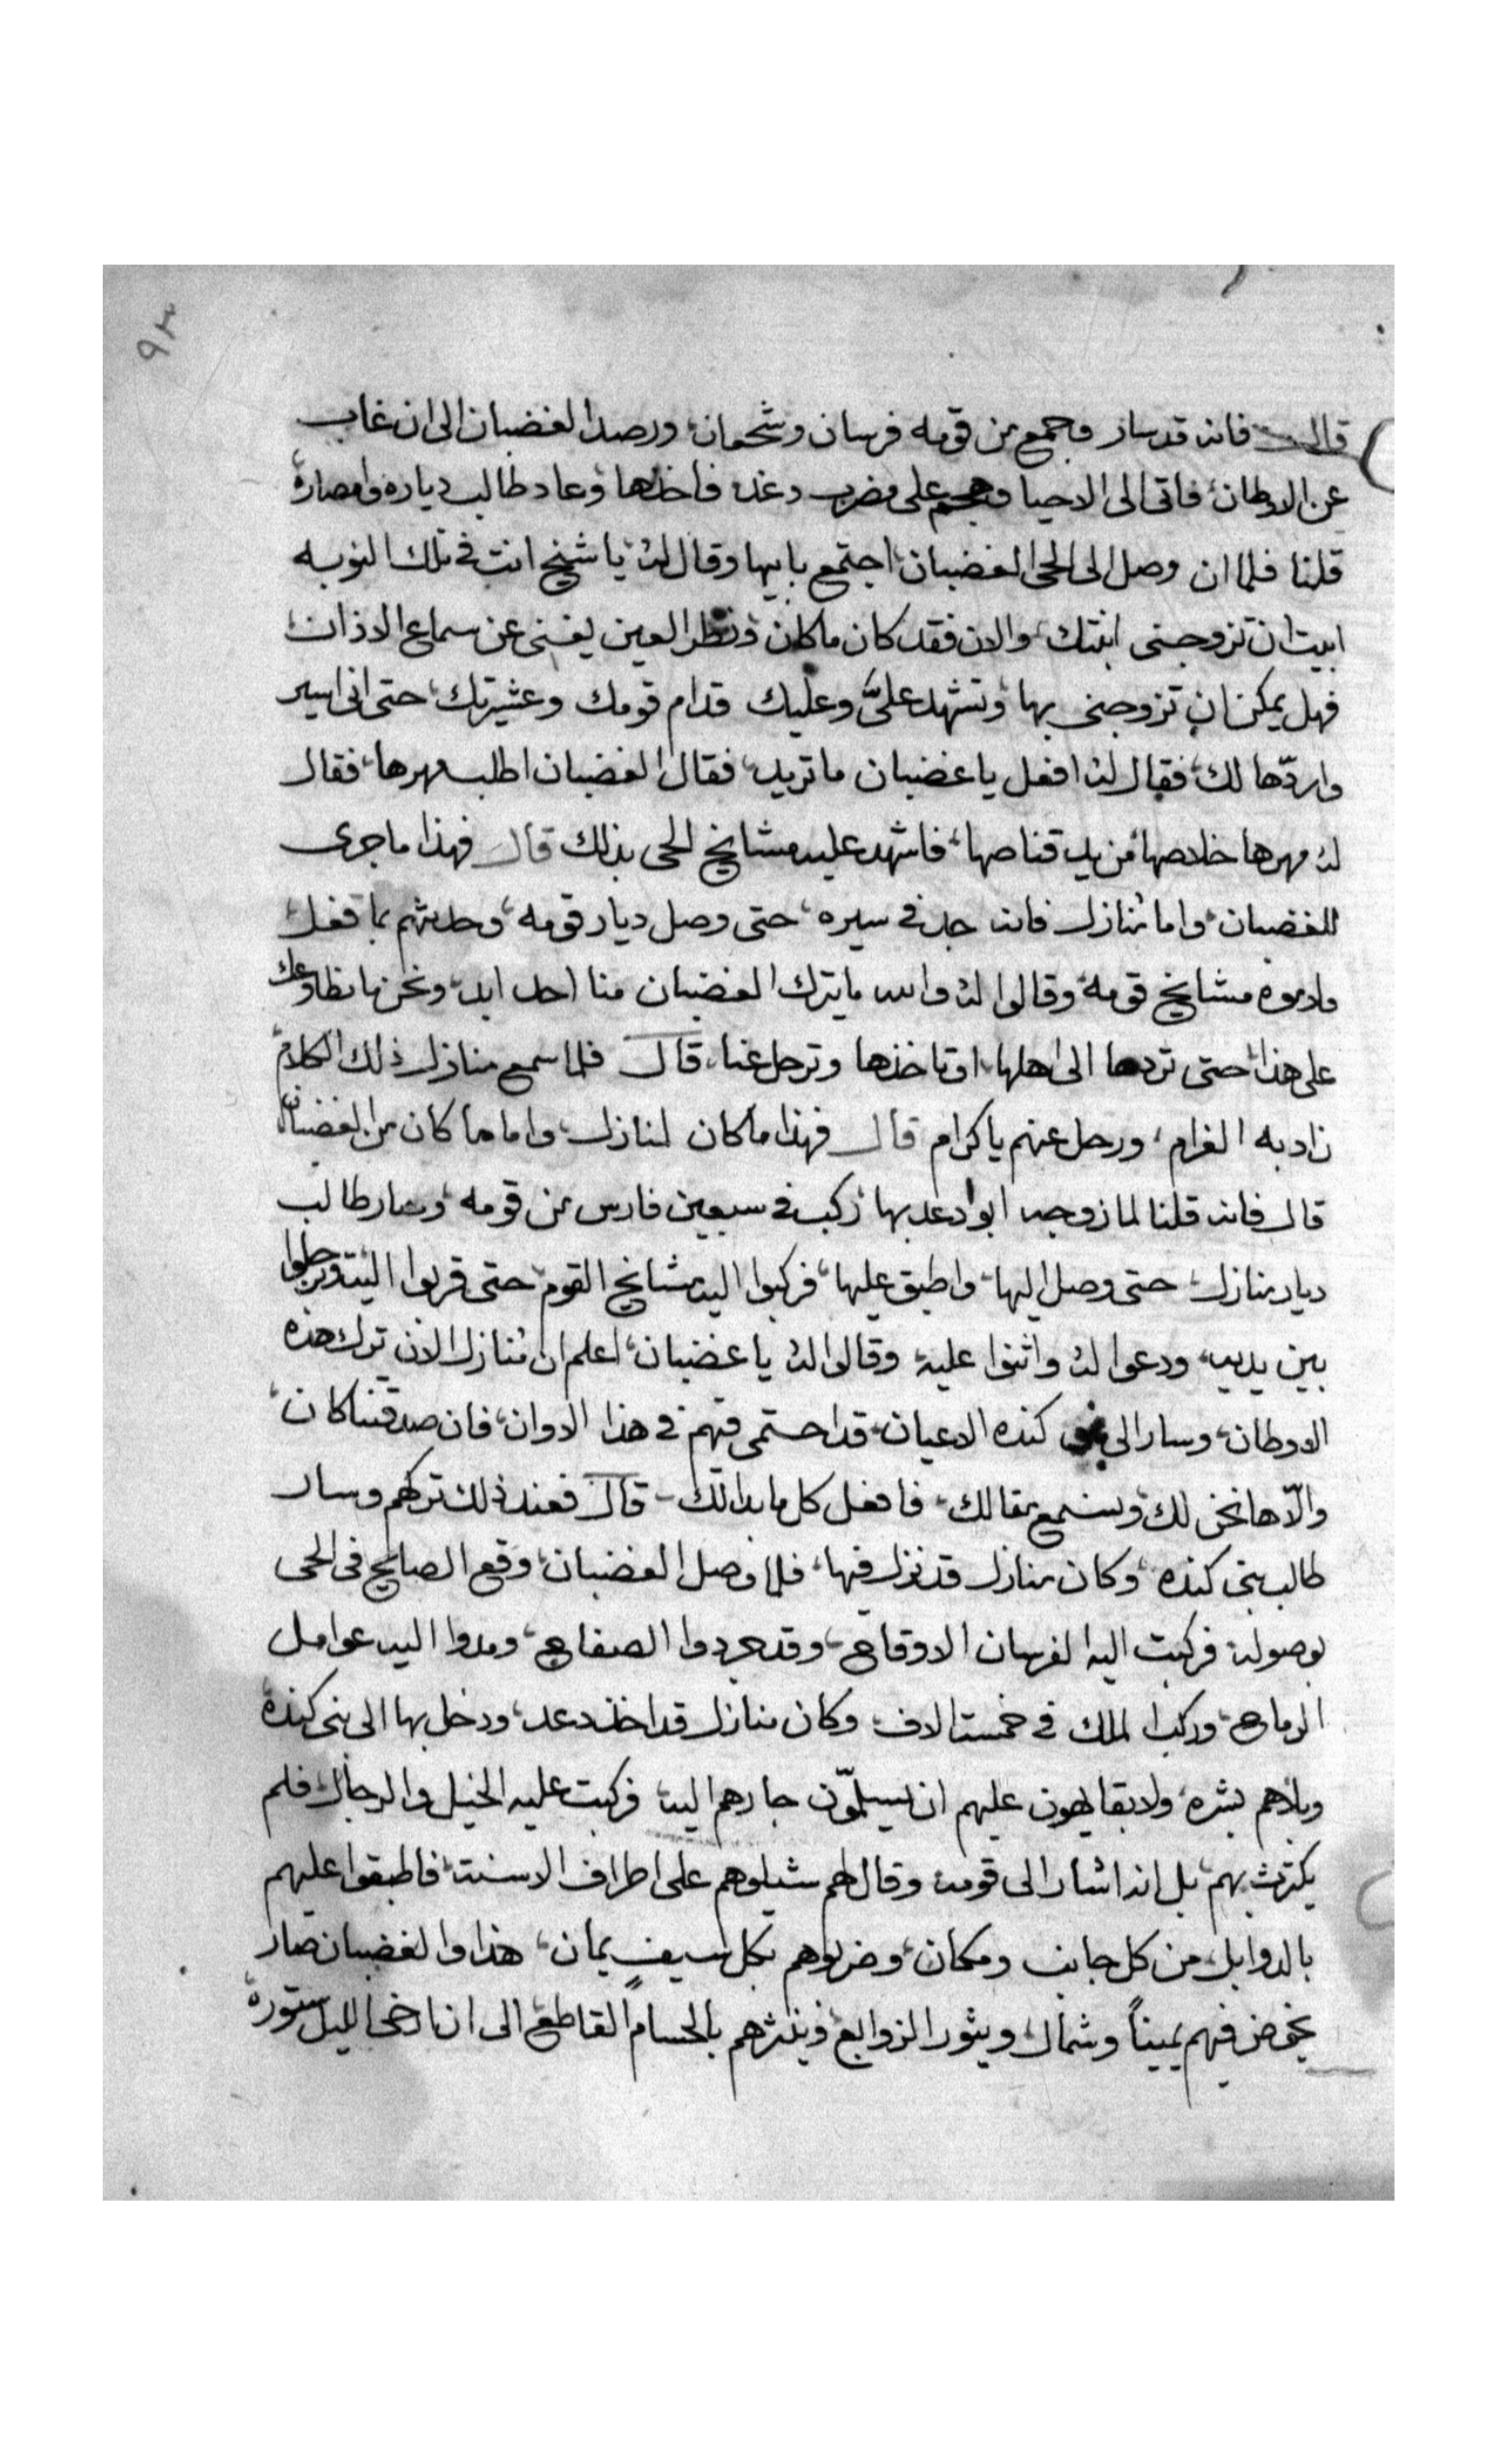 ٩٣
قال فانه قد سار وجمع من قومه فرسان وشجعان، ورصد الغضبان الى ان غاب
عن الاوطان، فاتى الى الاحيا وهجم على مضرب دعد فاخذها، وعاد طالب دياره وامصاره
قلنا فلما ان وصل الى الحى الغضبان، اجتمع بابيها وقال له، يا شيخ انت فى تلك النوبه
ابيت ان تزوجنى ابنتك، والان فقد كان ما كان، ونظر العين يغنى عن سماع الاذان
فهل يمكن ان تزوجنى بها، وتشهد علىَّ وعليك قدام قومك وعشيرتك، حتى انى اسير
واردّها لك، فقال له افعل يا غضبان ما تريد، فقال الغضبان اطلب مهرها، فقال
له مهرها خلاصها من يد قناصها، فاشهد عليه مشايخ الحى بذلك قال فهذا ما جرى
للغضبان، واما منازل فانه جد فى سيره، حتى وصل ديار قومه، وحدثهم بما فعل
ولاموه مشايخ قومه، وقالوا له والله ما يترك الغضبان منا احد ابد، ونحن ما نطاوعك
على هذا، حتى تردها الى اهلها، او تاخذها وترحل عنا، قال فلما سمع منازل ذلك الكلام
زاد به الغرام، ورحل عنهم يا كرام قال فهذا ما كان لمنازل، واما ما كان من الغضبان
قال فانه قلنا لما زوجه ابو دعد بها، ركب فى سبعين فارس من قومه، وسار طالب
ديار منازل، حتى وصل اليها، واطبق عليها، فركبوا اليه مشايخ القوم، حتى قربوا اليه، وترجلوا
بين يديه، ودعوا له واثنوا عليه، وقالوا له يا غضبان، اعلم ان منازل الان ترك هذه
الاوطان، وسار الى كنده الاعيان، قد احتمى فيهم فى هذا الاوان، فان صدقتنا كان،
والّا ها نحن لك، ونسمع مقالك، فافعل كل ما بدا لك، قال فعند ذلك تركهم وسار
طالب بنى كنده، وكان منازل قد نزل فيها، فلما وصل الغضبان، وقع الصايح فى الحى
بوصوله، فركبت اليه الفرسان الاوقاح، وقد جردوا الصفاح، ومدوا اليه عوامل
الرماح، وركب الملك فى خمسة الاف، وكان منازل قد اخذ دعد، ودخل بها الى بنى كنده
وبلاهم بشره، ولا بقا يهون عليهم ان يسلمّون جارهم اليه، فركبت عليه الخيل والرجال، فلم
يكترث بهم، بل انه اشار الى قومه وقال لهم شيلوهم على اطراف الاسنة، فاطبقوا عليهم
بالدوابل، من كل جانب ومكان، وضربوهم بكل سيفٍ يمان، هذا والغضبان صار
يخوض فيهم يميناً وشمال، ويثور الزوابع، وينثرهم بالحسام القاطع، الى ان ارخى الليل ستوره